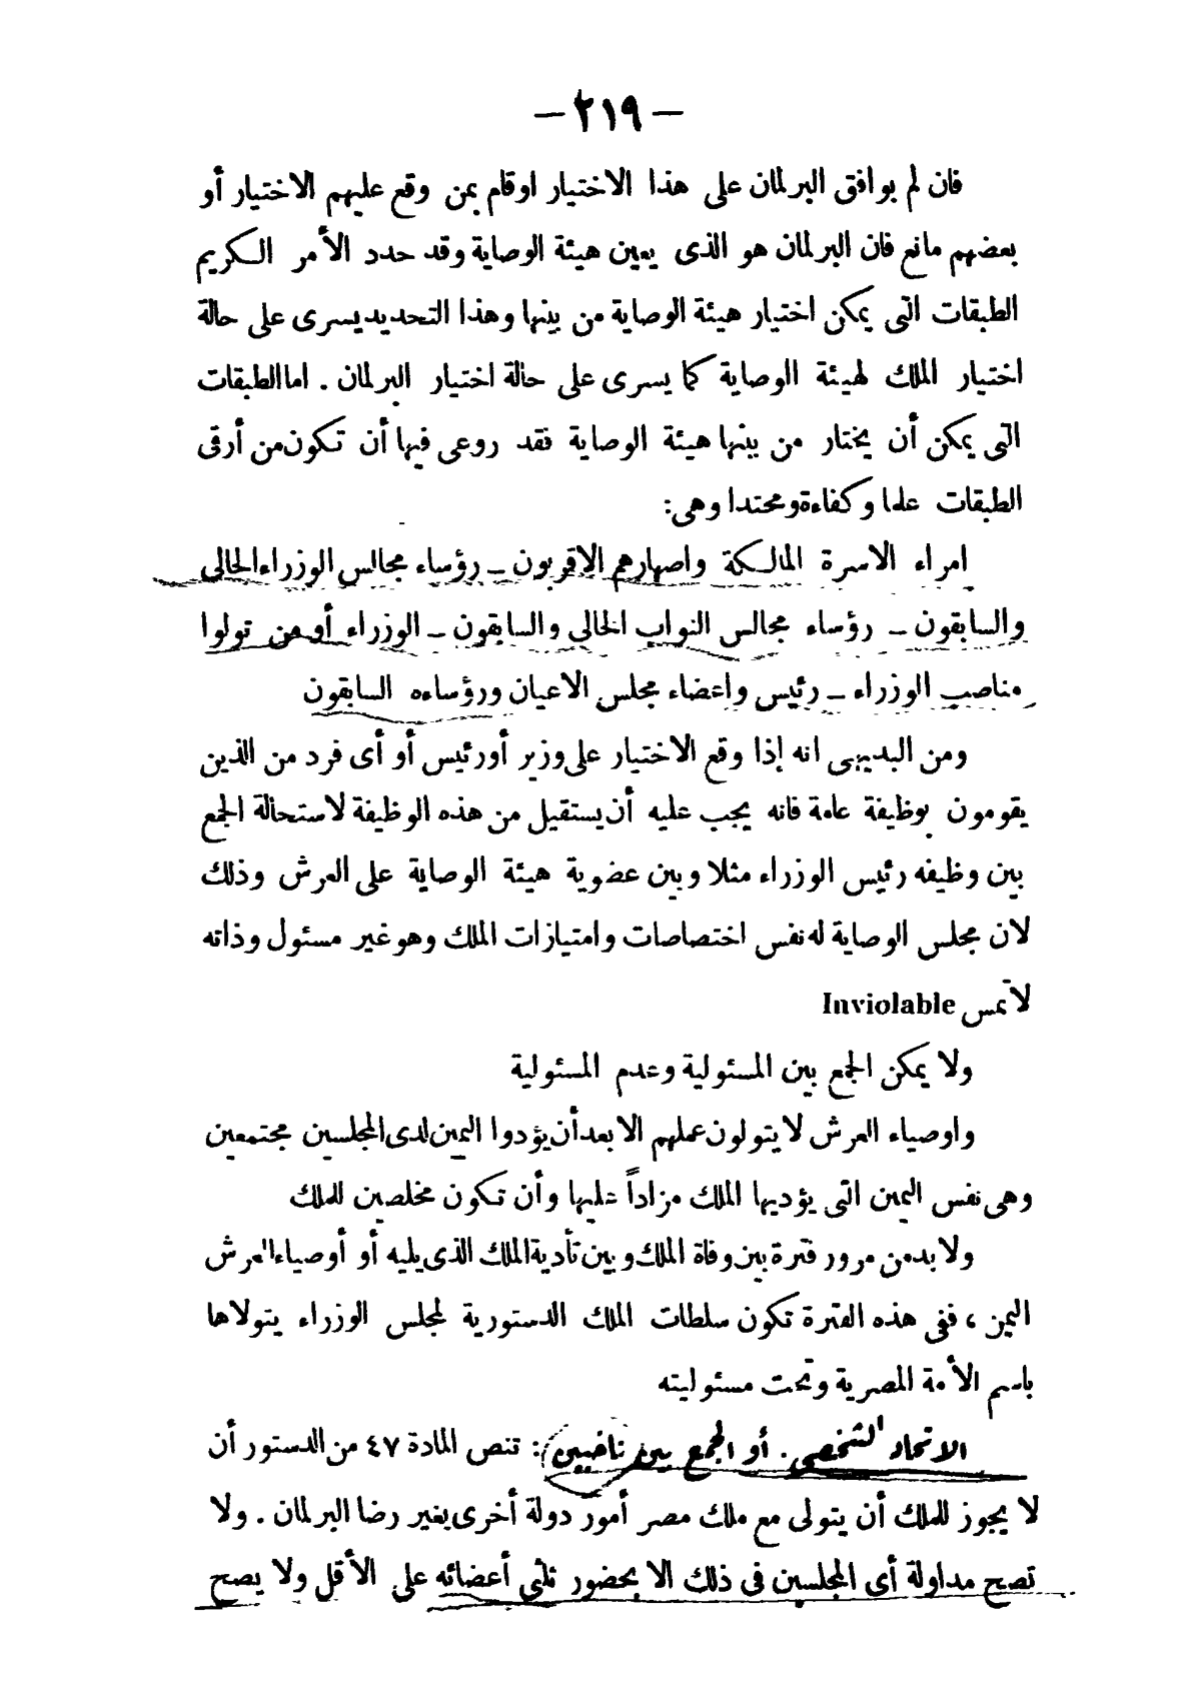 — ٢١٩ —
فان لم يوافق البرلمان على هذا الاختيار اوقام بمن وقع عليهم الاختيار أو
بعضهم مانع فان البرلمان هو الذى يعين هيئة الوصاية وقد حدد الأمر الكريم
الطبقات التى يمكن اختيار هيئة الوصاية من بينها وهذا التحديد يسرى على حالة
اختيار الملك لهيئة الوصاية كما يسرى على حالة اختيار البرلمان . اما الطبقات
التى يمكن أن يختار من بينها هيئة الوصاية فقد روعى فيها أن تكون من أرقى
الطبقات علما وكفاءة ومحتدا وهى :
امراء الاسرة المالكة واصهارهم الاقربون ــ رؤساء مجالس الوزراء الحالى
والسابقون ــ رؤساء مجالس النواب الحالى والسابقون ــ الوزراء أو من تولوا
مناصب الوزراء ــ رئيس واعضاء مجلس الاعيان ورؤساءه السابقون
ومن البديهى انه إذا وقع الاختيار على وزير أو رئيس أو أى فرد من الذين
يقومون بوظيفة عامة فانه يجب عليه أن يستقيل من هذه الوظيفة لاستحالة الجمع
بين وظيفه رئيس الوزراء مثلا وبين عضوية هيئة الوصاية على العرش وذلك
لان مجلس الوصاية له نفس اختصاصات وامتيازات الملك وهو غير مسئول وذاته
لا تمس Inviolable
ولا يمكن الجمع بين المسئولية وعدم المسئولية
واوصياء العرش لا يتولون عملهم الا بعد أن يؤدوا اليمين لدى المجلسين مجتمعين
وهى نفس اليمين التى يؤديها الملك مزاداً عليها وأن تكون مخلصين للملك
ولا بد من مرور فترة بين وفاة الملك وبين تأدية الملك الذى يليه أو أوصياء العرش
اليمين ، ففى هذه الفترة تكون سلطات الملك الدستورية لمجلس الوزراء يتولاها
باسم الأمة المصرية وتحت مسئوليته
الاتحاد الشخصى . أو الجمع بين تاجين : تنص المادة ٤٧ من الدستور أن
لا يجوز للملك أن يتولى مع ملك مصر أمور دولة أخرى بغير رضا البرلمان . ولا
تصح مداولة أى المجلسين فى ذلك الا بحضور ثلثى أعضائه على الأقل ولا يصح